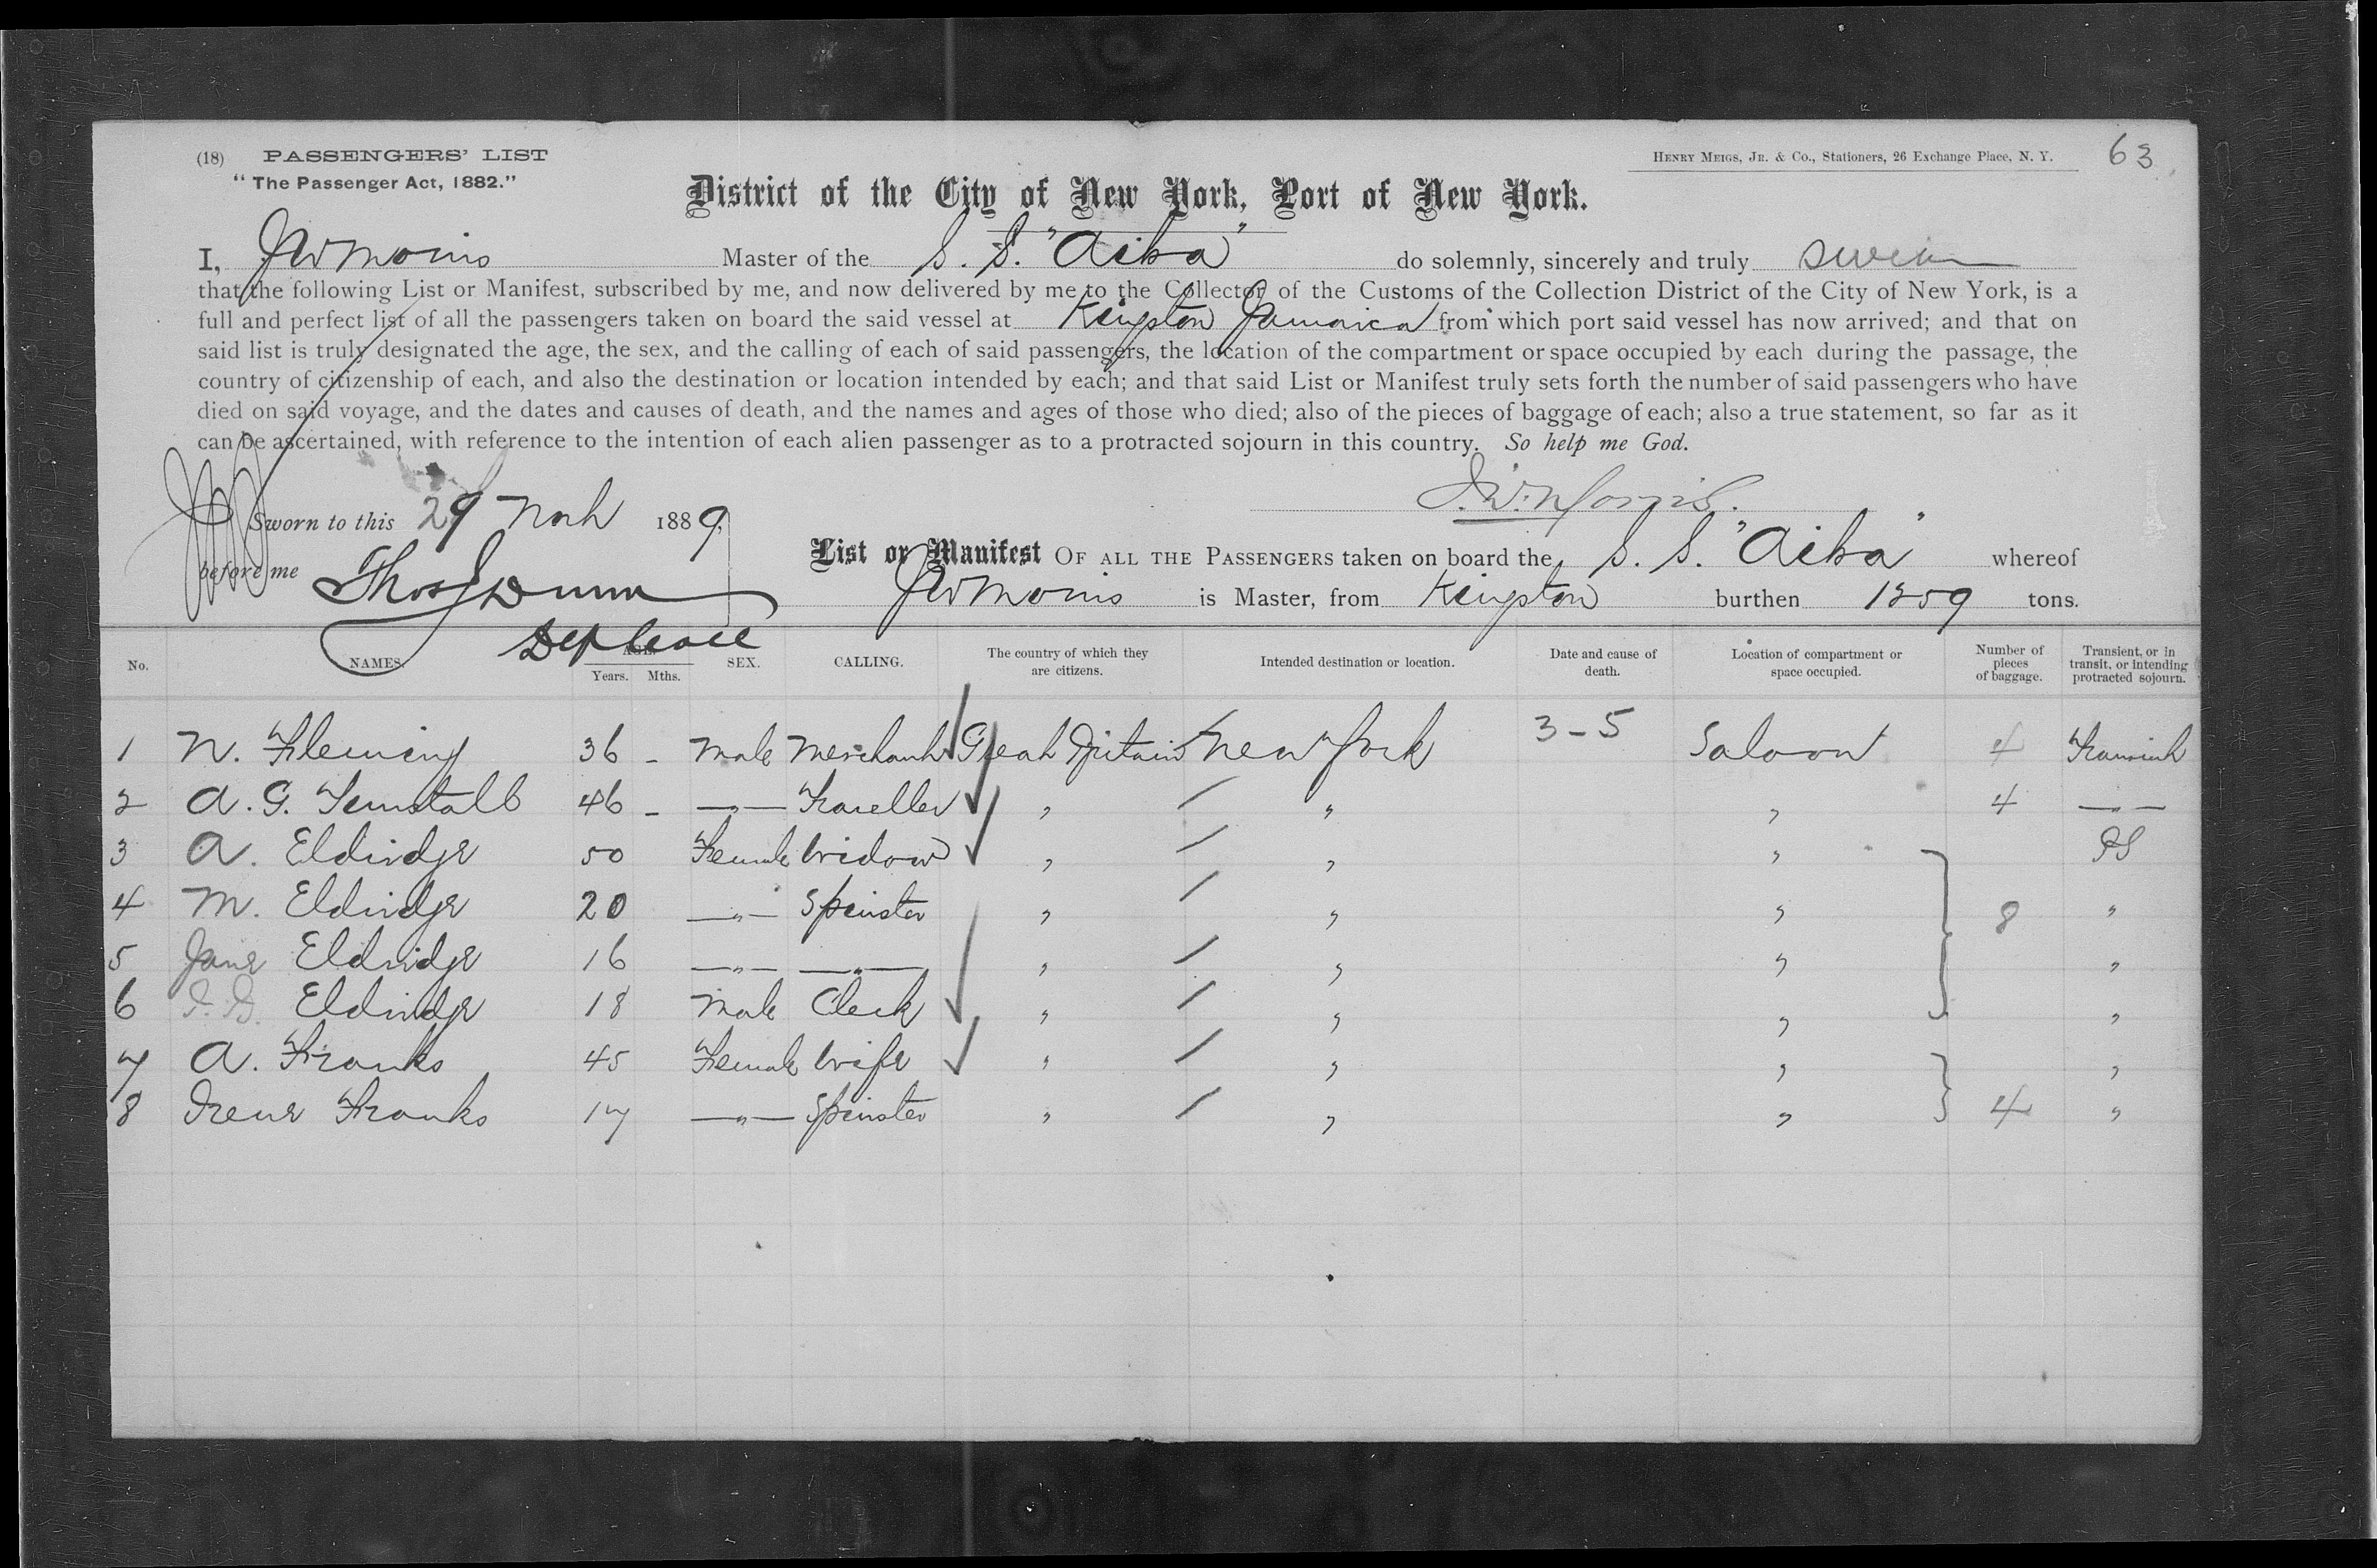 (18) PASSENGERS' LIST
HENRY MEIGS, JR. & Co., Stationers, 26 Exchange Place, N. Y. 63
"The Passenger Act, 1882."
District of the City of New York, Port of New York.
I, J W Morris Master of the S. S. "Ailsa" do solemnly, sincerely and truly swear
that the following List or Manifest, subscribed by me, and now delivered by me to the Collector of the Customs of the Collection District of the City of New York, is a
full and perfect list of all the passengers taken on board the said vessel at Kingston Jamaica from which port said vessel has now arrived; and that on
said list is truly designated the age, the sex, and the calling of each of said passengers, the location of the compartment or space occupied by each during the passage, the
country of citizenship of each, and also the destination or location intended by each; and that said List or Manifest truly sets forth the number of said passengers who have
died on said voyage, and the dates and causes of death, and the names and ages of those who died; also of the pieces of baggage of each; also a true statement, so far as it
can be ascertained, with reference to the intention of each alien passenger as to a protracted sojourn in this country. So help me God.
J. W. Morris.
Sworn to this 29 1889
List or Manifest OF ALL THE PASSENGERS taken on board the S. S. "Ailsa" whereof
before me Thos J Dunn
J W Morris is Master, from Kingston burthen 1259 tons.
No. NAMES. AGE. Years. Mths. SEX. CALLING. The country of which they are citizens. Intended destination or location. Date and cause of death. Location of compartment or space occupied. Number of pieces of baggage. Transient, or in transit, or intending protracted sojourn.
1 N. Fleming 36 - Male Merchant Great Britain New York 3-5 Saloon 4 Transient
2 A. G. 46 - —"— Traveller " " " 4 —"—
3 A. Eldridge 50 Female Widow " " " PS
4 M. Eldridge 20 —"— Spinster " " " 8 "
5 Jane Eldridge 16 —"— —"— " " " "
6 Eldridge 18 Male Clerk " " " "
7 A. Franks 45 Female Wife " " " "
8 Irene Franks 17 —"— Spinster " " " 4 "